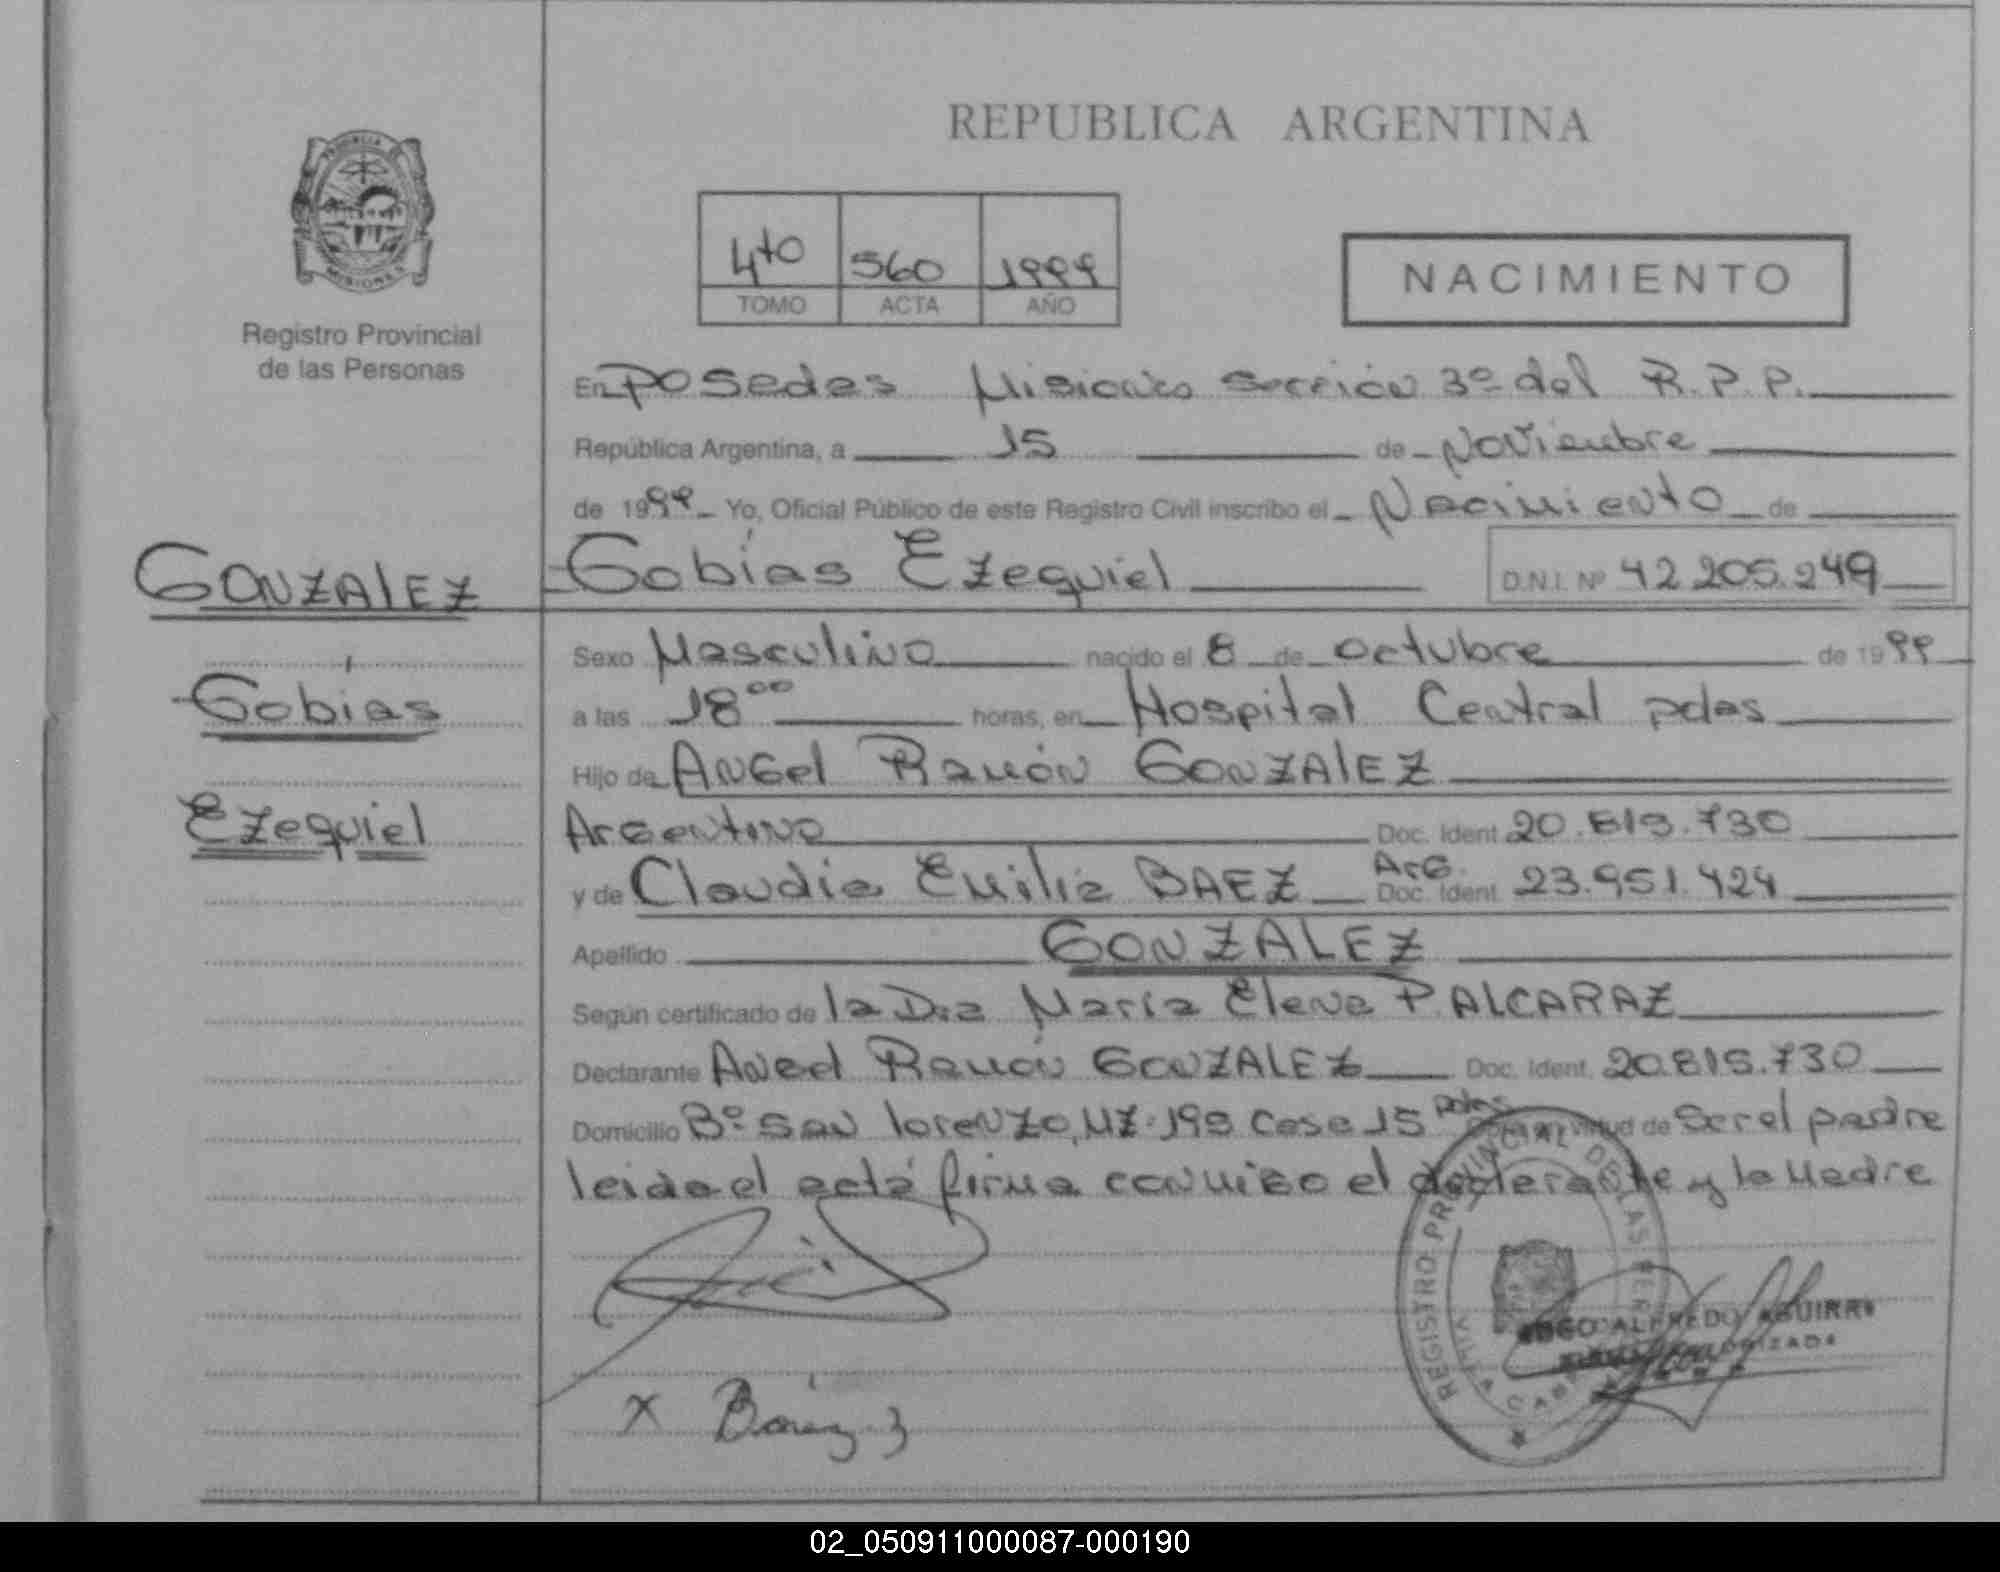 REPUBLICA ARGENTINA
4to 560 1999
TOMO ACTA AÑO
NACIMIENTO
Registro Provincial
de las Personas
En Posadas Misiones sección 3º del R.P.P.
República Argentina, a 15 de Noviembre
de 1999 Yo, Oficial Público de este Registro Civil inscribo el Nacimiento de
Tobías Ezequiel D.N.I. Nº 42.205.249
GONZALEZ
Tobías
Ezequiel
Sexo Masculino nacido el 8 de octubre de 1999
a las 18 00 horas, en Hospital Central pdas
Hijo de Angel Ramón GONZALEZ
Argentino Doc. Ident. 20.815.730
y de Claudia Emilia BAEZ Arg. Doc. Ident. 23.951.424
Apellido GONZALEZ
Según certificado de la Dra María Elena P. ALCARAZ
Declarante Angel Ramón GONZALEZ Doc. Ident. 20.815.730
Domicilio Bº San lorenzo, MZ.193 Casa 15 pdas virtud de Ser el padre
leida el acta firma conmigo el declarante y la Madre
REGISTRO PROVINCIAL DE LAS PERSONAS
X Baez
ALFREDO AGUIRRE
02_050911000087-000190